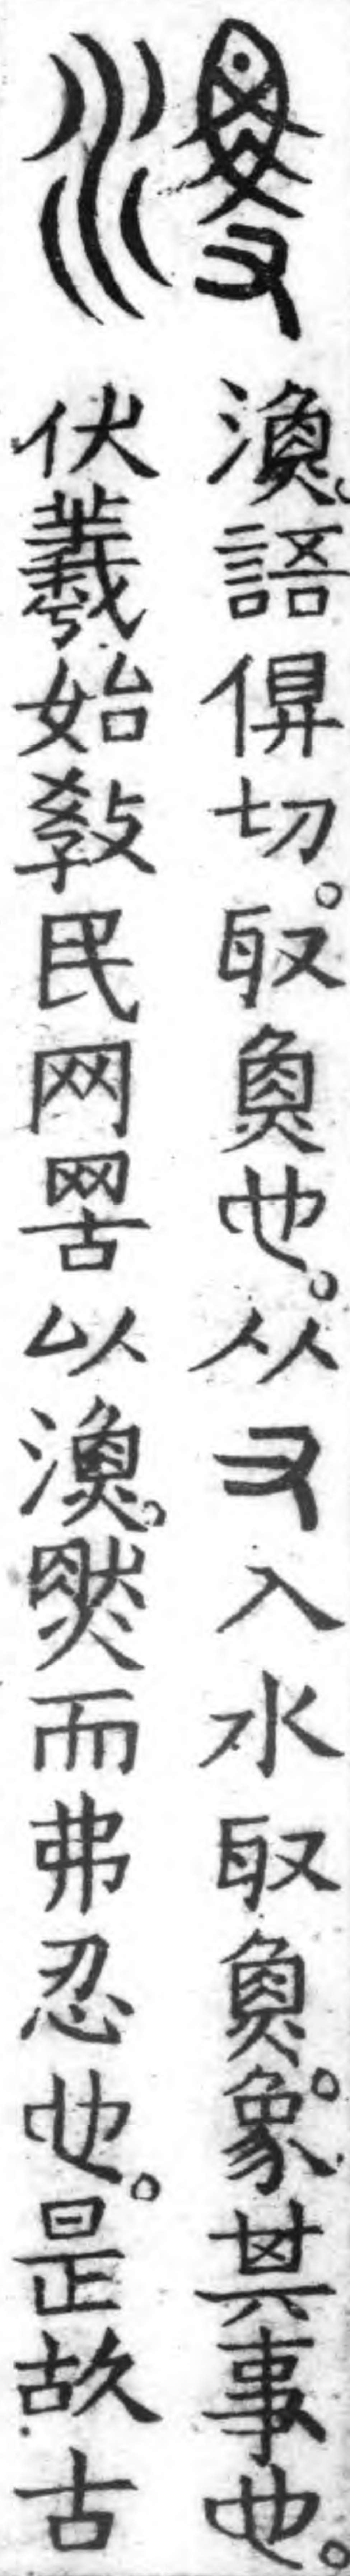 漁語俱切。取魚也。从又入水取魚。象其事也。
伏羲始敎民网罟以漁。然而弗忍也。是故古